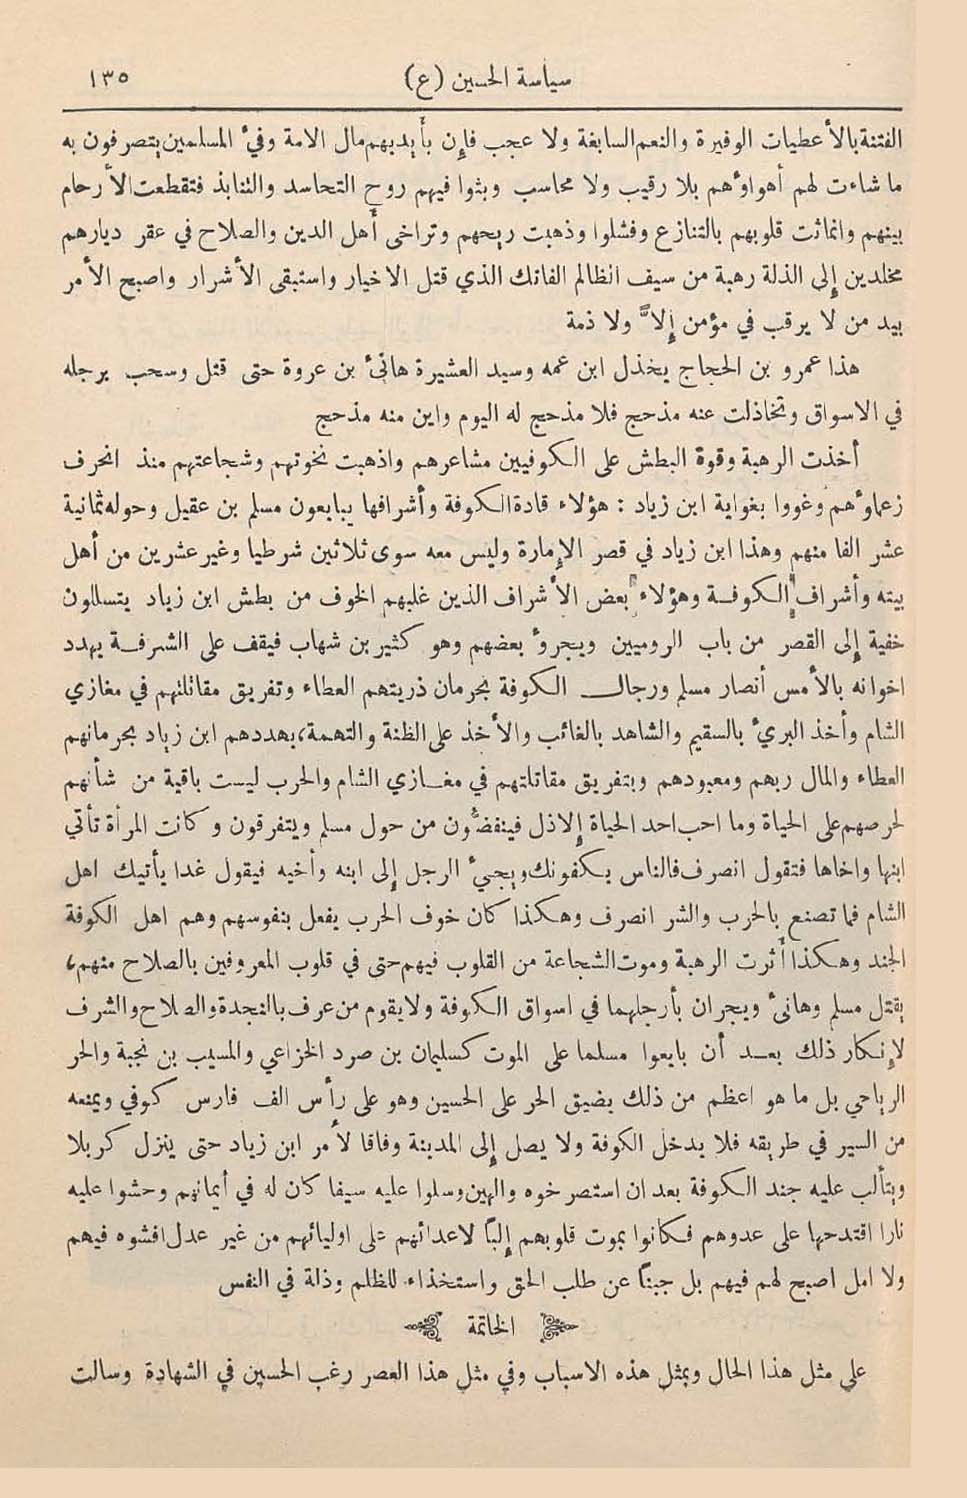 سياسة الحسين (ع) ١٣٥
الفتنة بالأعطيات الوفيرة والنعم السابغة ولا عجب فإن بأيديهم مال الامة وفيء المسلمين يتصرفون به
ما شاءت لهم أهواؤهم بلا رقيب ولا محاسب وبثوا فيهم روح التحاسد والتنابذ فتقطعت الأرحام
بينهم وانماثت قلوبهم بالتنازع وفشلوا وذهبت ريحهم وتراخى أهل الدين والصلاح في عقر ديارهم
مخلدين إلى الذلة رهبة من سيف الظالم الفاتك الذي قتل الاخيار واستبقى الأشرار واصبح الأمر
بيد من لا يرقب في مؤمن إلاًّ ولا ذمة
هذا عمرو بن الحجاج يخذل ابن عمه وسيد العشيرة هانئ بن عروة حتى قتل وسحب برجله
في الاسواق وتخاذلت عنه مذحج فلا مذحج له اليوم واين منه مذحج
أخذت الرهبة وقوة البطش على الكوفيين مشاعرهم واذهبت نخوتهم وشجاعتهم منذ انحرف
زعماؤهم وغووا بغواية ابن زياد : هؤلاء قادة الكوفة وأشرافها يبايعون مسلم بن عقيل وحوله ثمانية
عشر الفا منهم وهذا ابن زياد في قصر الإمارة وليس معه سوى ثلاثين شرطيا وغير عشرين من أهل
بيته وأشراف الكوفة وهؤلاء بعض الأشراف الذين غلبهم الخوف من بطش ابن زياد يتسللون
خفية إلى القصر من باب الروميين ويجرؤ بعضهم وهو كثير بن شهاب فيقف على الشرفة يهدد
اخوانه بالأمس أنصار مسلم ورجال الكوفة بحرمان ذريتهم العطاء وتفريق مقاتلتهم في مغازي
الشام وأخذ البريء بالسقيم والشاهد بالغائب والأخذ على الظنة والتهمة، يهددهم ابن زياد بحرمانهم
العطاء والمال ربهم ومعبودهم وبتفريق مقاتلتهم في مغازي الشام والحرب ليست باقية من شأنهم
لحرصهم على الحياة وما احب احد الحياة إلا ذل فينفضُّون من حول مسلم ويتفرقون وكانت المرأة تأتي
ابنها واخاها فتقول انصرف فالناس يكفونك ويجيء الرجل إلى ابنه وأخيه فيقول غدا يأتيك اهل
الشام فما تصنع بالحرب والشر انصرف وهكذا كان خوف الحرب يفعل بنفوسهم وهم اهل الكوفة
الجند وهكذا أثرت الرهبة وموت الشجاعة من القلوب فيهم حتى في قلوب المعروفين بالصلاح منهم،
يقتل مسلم وهانئ ويجران بأرجلهما في اسواق الكوفة ولا يقوم من عرف بالنجدة والصلاح والشرف
لإنكار ذلك بعد أن بايعوا مسلما على الموت كسليمان بن صرد الخزاعي والمسيب بن نجبة والحر
الرياحي بل ما هو اعظم من ذلك يضيق الحر على الحسين وهو على رأس الف فارس كوفي ويمنعه
من السير في طريقه فلا يدخل الكوفة ولا يصل إلى المدينة وفاقا لأمر ابن زياد حتى ينزل كربلا
ويتألب عليه جند الكوفة بعد ان استصرخوه والهين وسلوا عليه سيفا كان له في أيمانهم وحشوا عليه
نارا اقتدحها على عدوهم فكانوا بموت قلوبهم إلبًا لاعدائهم على اوليائهم من غير عدل افشوه فيهم
ولا امل اصبح لهم فيهم بل جبنًا عن طلب الحق واستخذاء للظلم وذلة في النفس
الخاتمة
على مثل هذا الحال وبمثل هذه الاسباب وفي مثل هذا العصر رغب الحسين في الشهادة وسالت